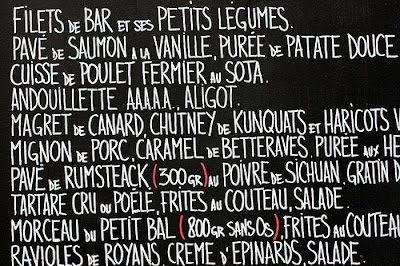 FILETS DE BAR ET SES PETITS LEGUMES.
PAVÉ DE SAUMON A LA VANILLE, PURÉE DE PATATE DOUCE.
CUISSE DE POULET FERMIER AU SOJA.
ANDOUILLETTE AAAAA, ALIGOT.
MAGRET DE CANARD, CHUTNEY DE KUNQUATS ET HARICOTS V
MIGNON DE PORC, CARAMEL DE BETTERAVES, PURÉE AUX HE
PAVÉ DE RUMSTEACK (300GR) AU POIVRE DE SICHUAN, GRATIN D
TARTARE CRU OU POÊLÉ, FRITES AU COUTEAU, SALADE.
MORCEAU DU PETIT BAL (800GR SANS OS), FRITES AU COUTEAU
RAVIOLES DE ROYANS, CREME D'EPINARDS, SALADE.